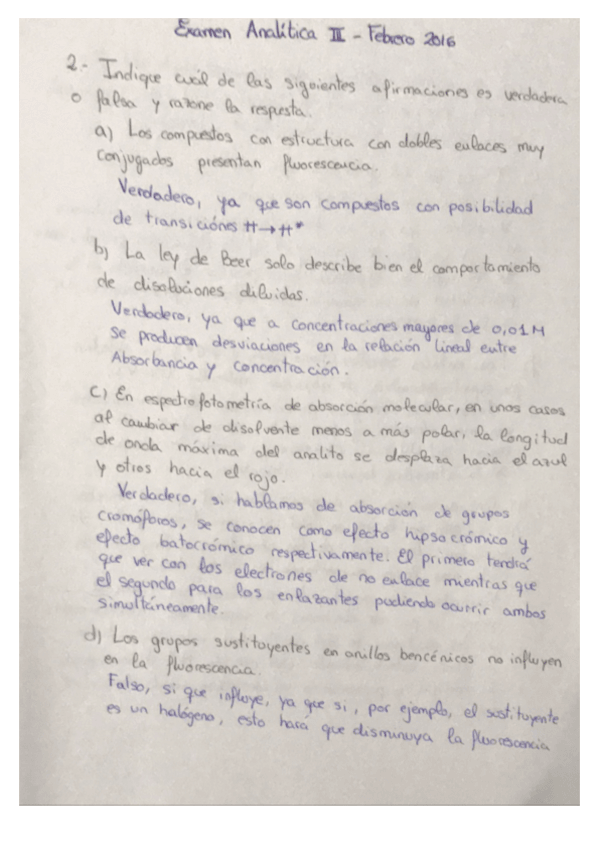 Examen Analítica II - Febrero 2016
2.- Indique cuál de las siguientes afirmaciones es verdadera
o falsa y razone la respuesta.
a) Los compuestos con estructura con dobles enlaces muy
conjugados presentan fluorescencia.
Verdadero, ya que son compuestos con posibilidad
de transiciónes π→π*
b) La ley de Beer solo describe bien el comportamiento
de disoluciones diluidas.
Verdadero, ya que a concentraciones mayores de 0,01M
se producen desviaciones en la relación lineal entre
Absorbancia y concentración.
c) En espectrofotometría de absorción molecular, en unos casos
al cambiar de disolvente menos a más polar, la longitud
de onda máxima del analito se desplaza hacia el azul
y otros hacia el rojo.
Verdadero, si hablamos de absorción de grupos
cromóforos, se conocen como efecto hipsocrómico y
efecto batocrómico respectivamente. El primero tendrá
que ver con los electrones de no enlace mientras que
el segundo para los enlazantes pudiendo ocurrir ambos
simultáneamente.
d) Los grupos sustituyentes en anillos bencénicos no influyen
en la fluorescencia.
Falso, si que influye, ya que si, por ejemplo, el sustituyente
es un halógeno, esto hará que disminuya la fluorescencia